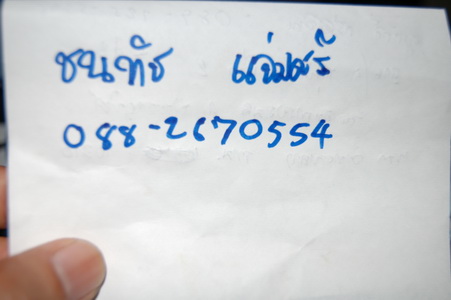 ชนทัช แจ่มศรี
088-2670554